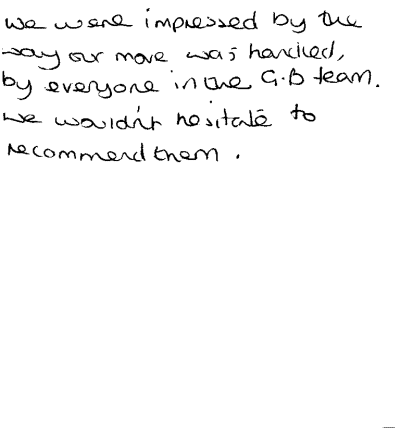 We were impressed by the
way our move was handled,
by everyone in the G.B team.
We wouldn't hesitate to
recommend them.